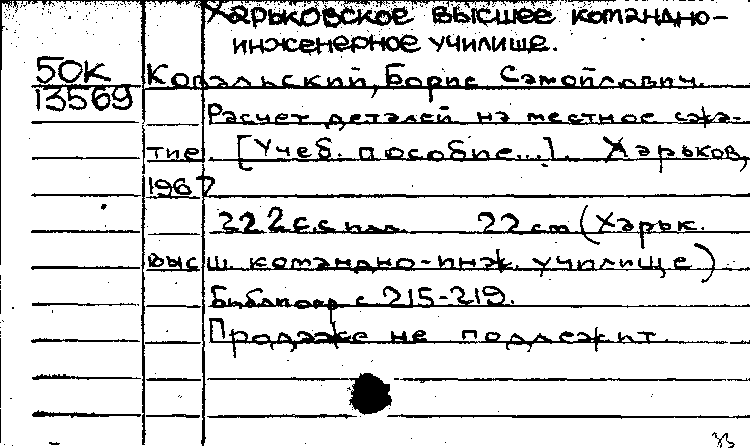 Харьковское высшее командно-
инженерное училище.
50К
13569
Ковальский, Борис Самойлович.
Расчет деталей на местное сжа-
тие. [Учеб. пособие...]. Харьков,
1967
222 с. с илл. 22 см (Харьк.
высш. командно-инж. училище)
Библиогр. с. 215-219.
Продаже не подлежит.